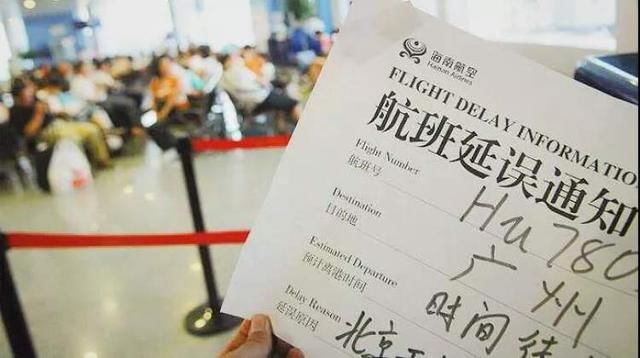 海南航空
Hainan Airlines
FLIGHT DELAY INFORMATION
航班延误通知
Flight Number
航班号
HU780
Destination
目的地
广州
Estimated Departure
预计离港时间
时间待
Delay Reason
延误原因
北京